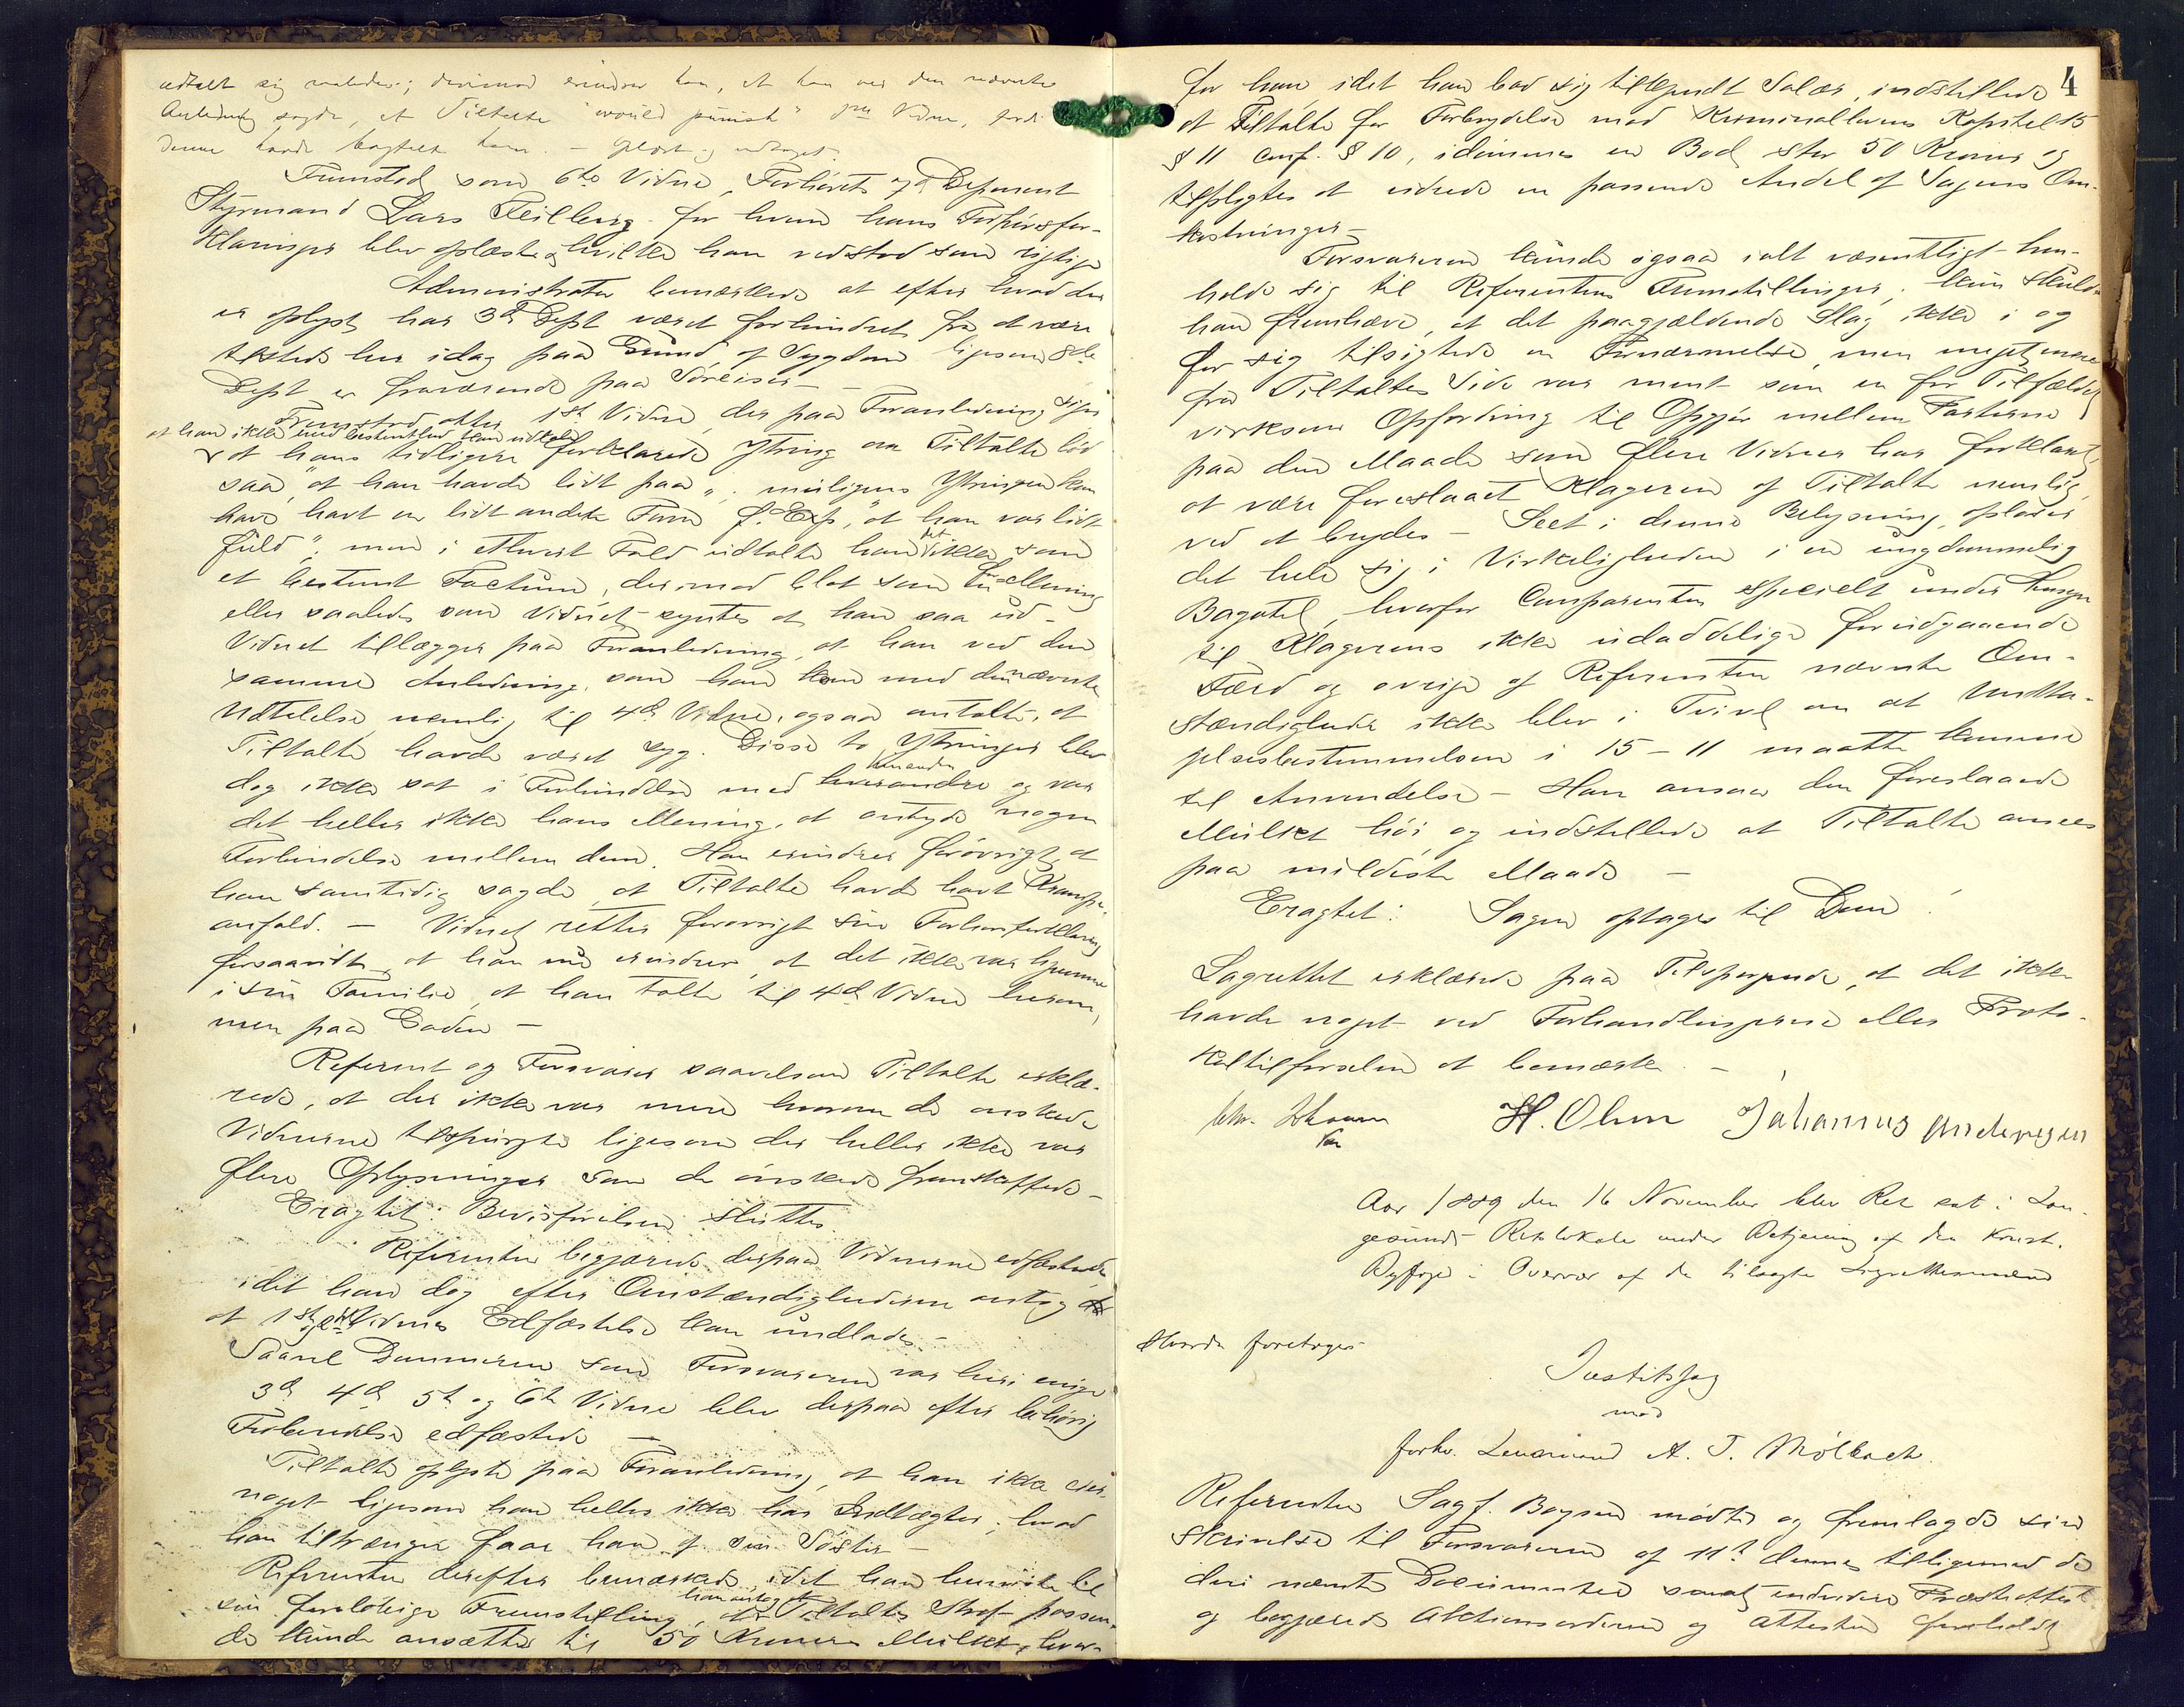 udtalt sig saaledes; derimod erindrer han, at han ved den nævnte
Anledning sagde, at Tiltalte "would punish" Vidne, fordi
denne havde bagtalt ham. - Oplæst og vedtaget.
Fremstod som 6te Vidne, Forhørets Deponent
Styrmand Lars Feilberg for hvem hans Forhørsfor-
klaringer blev oplæste hvilke han vedstod som rigtige
Administrator bemærkede at efter hvad der
er oplyst har 3die Dept været forhindret fra at være
tilstede her idag paa Grund af Sygdom ligesom 8de
Dept er fraværende paa Søreiser -
Fremstod atter 1ste Vidne, der paa Foranledning siger
at han ikke med Bestemthed kan udtale
at hans tidligere forklarede Ytring om Tiltalte lød
saa, "at han havde lidt paa", muligens Ytringen kan
have havt en lidt anden Form f. Exp. "at han var lidt
fuld", men i ethvert Fald udtalte han det ikke som
et bestemt Factum, derimod blot som en Mening
eller saaledes som Vidnet syntes at han saa ud -
Vidnet tillægger paa Foranledning, at han ved den
samme Anledning, som han kom med den nævnte
Udtalelse nemlig til 4de Vidne, ogsaa omtalte, at
Tiltalte havde været syg. Disse to Ytringer blev
dog ikke sat i Forbindelse med hverandre og var
det heller ikke hans Mening, at antyde nogen
Forbindelse mellem dem. Han erindrer forøvrigt, at
han samtidig sagde, at Tiltalte havde havt Krampe-
anfald. - Vidnet retter forøvrigt sin Forhørsforklaring
forsaavidt, at han nu erindrer, at det ikke var hjemme
i sin Familie, at han talte til 4de Vidne herom,
men paa Gaden -
Referent og Forsvarer saavelsom Tiltalte erklæ-
rede, at der ikke var mere hvorom de ønskede
Vidnerne tilspurgte ligesom der heller ikke var
flere Oplysninger som de ønskede fremskaffede -
Eragtet: Bevisførelsen sluttes.
Referenten begjærede derpaa Vidnerne edfæstede
idet han dog efter Omstændighederne antog
at 1ste og 2det Vidnes Edfæstelse kan undlades -
Saavel Dommeren som Forsvareren var heri enige
3de 4de 5te og 6te Vidne blev derpaa efter behørig
Forberedelse edfæstede -
Tiltalte oplyste paa Foranledning, at han ikke eier
noget ligesom han heller ikke har Indtægter; hvad
han tiltrænger faar han af sin Søster -
Referenten derefter bemærkede, idet han henviste til
sin foreløbige Fremstilling, han antog at Tiltaltes Straf passen-
de kunde ansættes til 50 Kroners Mulkt, hvor-
4
for han, idet han bad sig tilkjendt Salær, indstillede
at Tiltalte for Forbrydelse mod Kriminallovens Kapitel 15
§ 11 conf. § 10, idømmes en Bod stor 50 Kroner og
tilpligtes at udrede en passende Andel af Sagens Om-
kostninger -
Forsvareren kunde ogsaa i alt væsentligt hen-
holde sig til Referentens Fremstillinger; kun skulde
han fremhæve, at det paagjældende Slag ikke i og
for sig tilsigtede en Fornærmelse, men meget mere
fra Tiltaltes Side var ment som en for Tilfældet
virksom Opfordring til Opgjør mellem Parterne
paa den Maade som flere Vidner har forklaret
at være foreslaaet Klageren af Tiltalte nemlig
ved at brydes - Seet i denne Belysning, opløser
det hele sig i Virkeligheden i en ungdommelig
Bagatel, hvorfor Comparenten specielt under Hensyn
til Klagerens ikke udadelige forudgaaende
Færd og øvrige af Referenten nævnte Om-
stændigheder ikke blev i Tvivl om at Undta-
gelsesbestemmelsen i 15 - 11 maatte komme
til Anvendelse - Han ansaa den foreslaaede
Mulkt høi, og indstillede at Tiltalte ansees
paa mildeste Maade -
Eragtet: Sagen optages til Dom.
Lagrettet erklærede paa Tilspørgende, at det ikke
havde noget ved Forhandlingerne eller Proto-
koltilførselen at bemærke. -
H. Olsen Johannes Andersen
Aar 1889 den 16 November blev Ret sat i Lan-
gesunds Retslokale under Betjening af den konst.
Byfoged i Overvær af de tilsagte Lagrettesmænd
Hvorda foretoges
Justitssag
mod
forhv. Lensmand A. T. Mølbach.
Referenten Sagf. Boysen mødte og fremlagde sin
Skrivelse til Forsvareren af 11te dennes tilligemed de
deri nævnte Documenter samt endvidere Præsteattest
og begjærede Aktionsordren og Attesten foreholdt